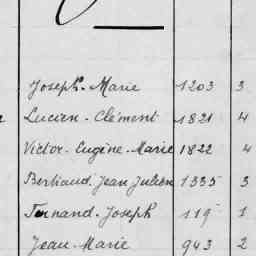 Joseph-Marie 1203 3
Lucien-Clément 1821 4
Victor-Eugène-Marie 1822 4
Bertiaud Jean Julien 1335 3
Fernand-Joseph 119 1
Jean-Marie 943 2